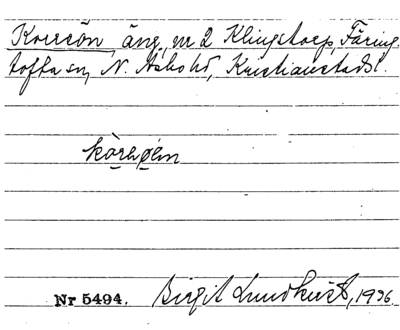 Korrön, äng, nr 2 Klingstorp, Färing-
tofta sn, N. Åsbo hd, Kristianstads l.
Nr 5494. Birgit Lundkvist, 1936.